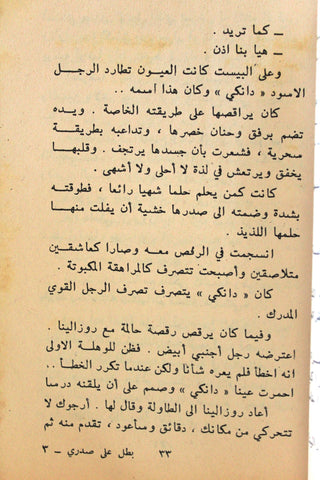 ــ كما تريد .
ــ هيا بنا اذن .
وعلى البيست كانت العيون تطارد الرجل
الاسود « دانكي » وكان هذا اسمه ..
كان يراقصها على طريقته الخاصة . ويده
تضم برفق وحنان خصرها ، وتداعبه بطريقة
سحرية ، فشعرت بأن جسدها يرتجف . وقلبها
يخفق ويرتعش في لذة لا أحلى ولا أشهى .
كانت كمن يحلم حلما شهيا رائعا ، فطوقته
بشدة وضمته الى صدرها خشية أن يفلت منها
حلمها اللذيذ .
انسجمت في الرقص معه وصارا كعاشقين
متلاصقين وأصبحت تتصرف كالمراهقة المكبوتة .
كان « دانكي » يتصرف تصرف الرجل القوي
المدرك .
وفيما كان يرقص رقصة حالمة مع روزالينا .
اعترضه رجل أجنبي أبيض . فظن للوهلة الاولى
انه اخطأ فلم يعره شأنا ولكن عندما تكرر الخطأ ..
احمرت عينا « دانكي » وصمم على أن يلقنه درسا
أعاد روزالينا الى الطاولة وقال لها . أرجوك لا
تتحركي من مكانك ، دقائق وسأعود ، تقدم منه ثم
٣٣ بطل على صدري ــ ٣